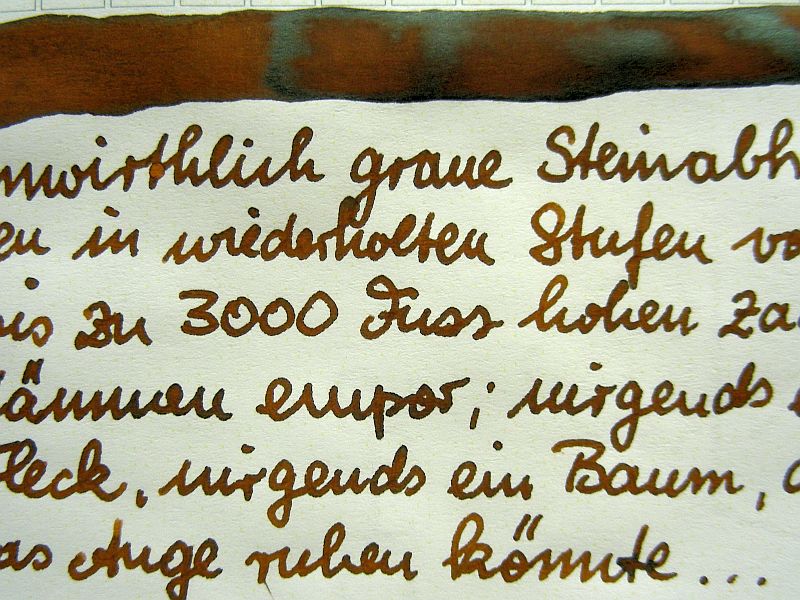 nwirthlich graue Steinabh
en in wiederholten Stufen vo
bis zu 3000 Fuss hohen Za
ämmen empor; nirgends e
Fleck, nirgends ein Baum, a
as Auge ruhen könnte...